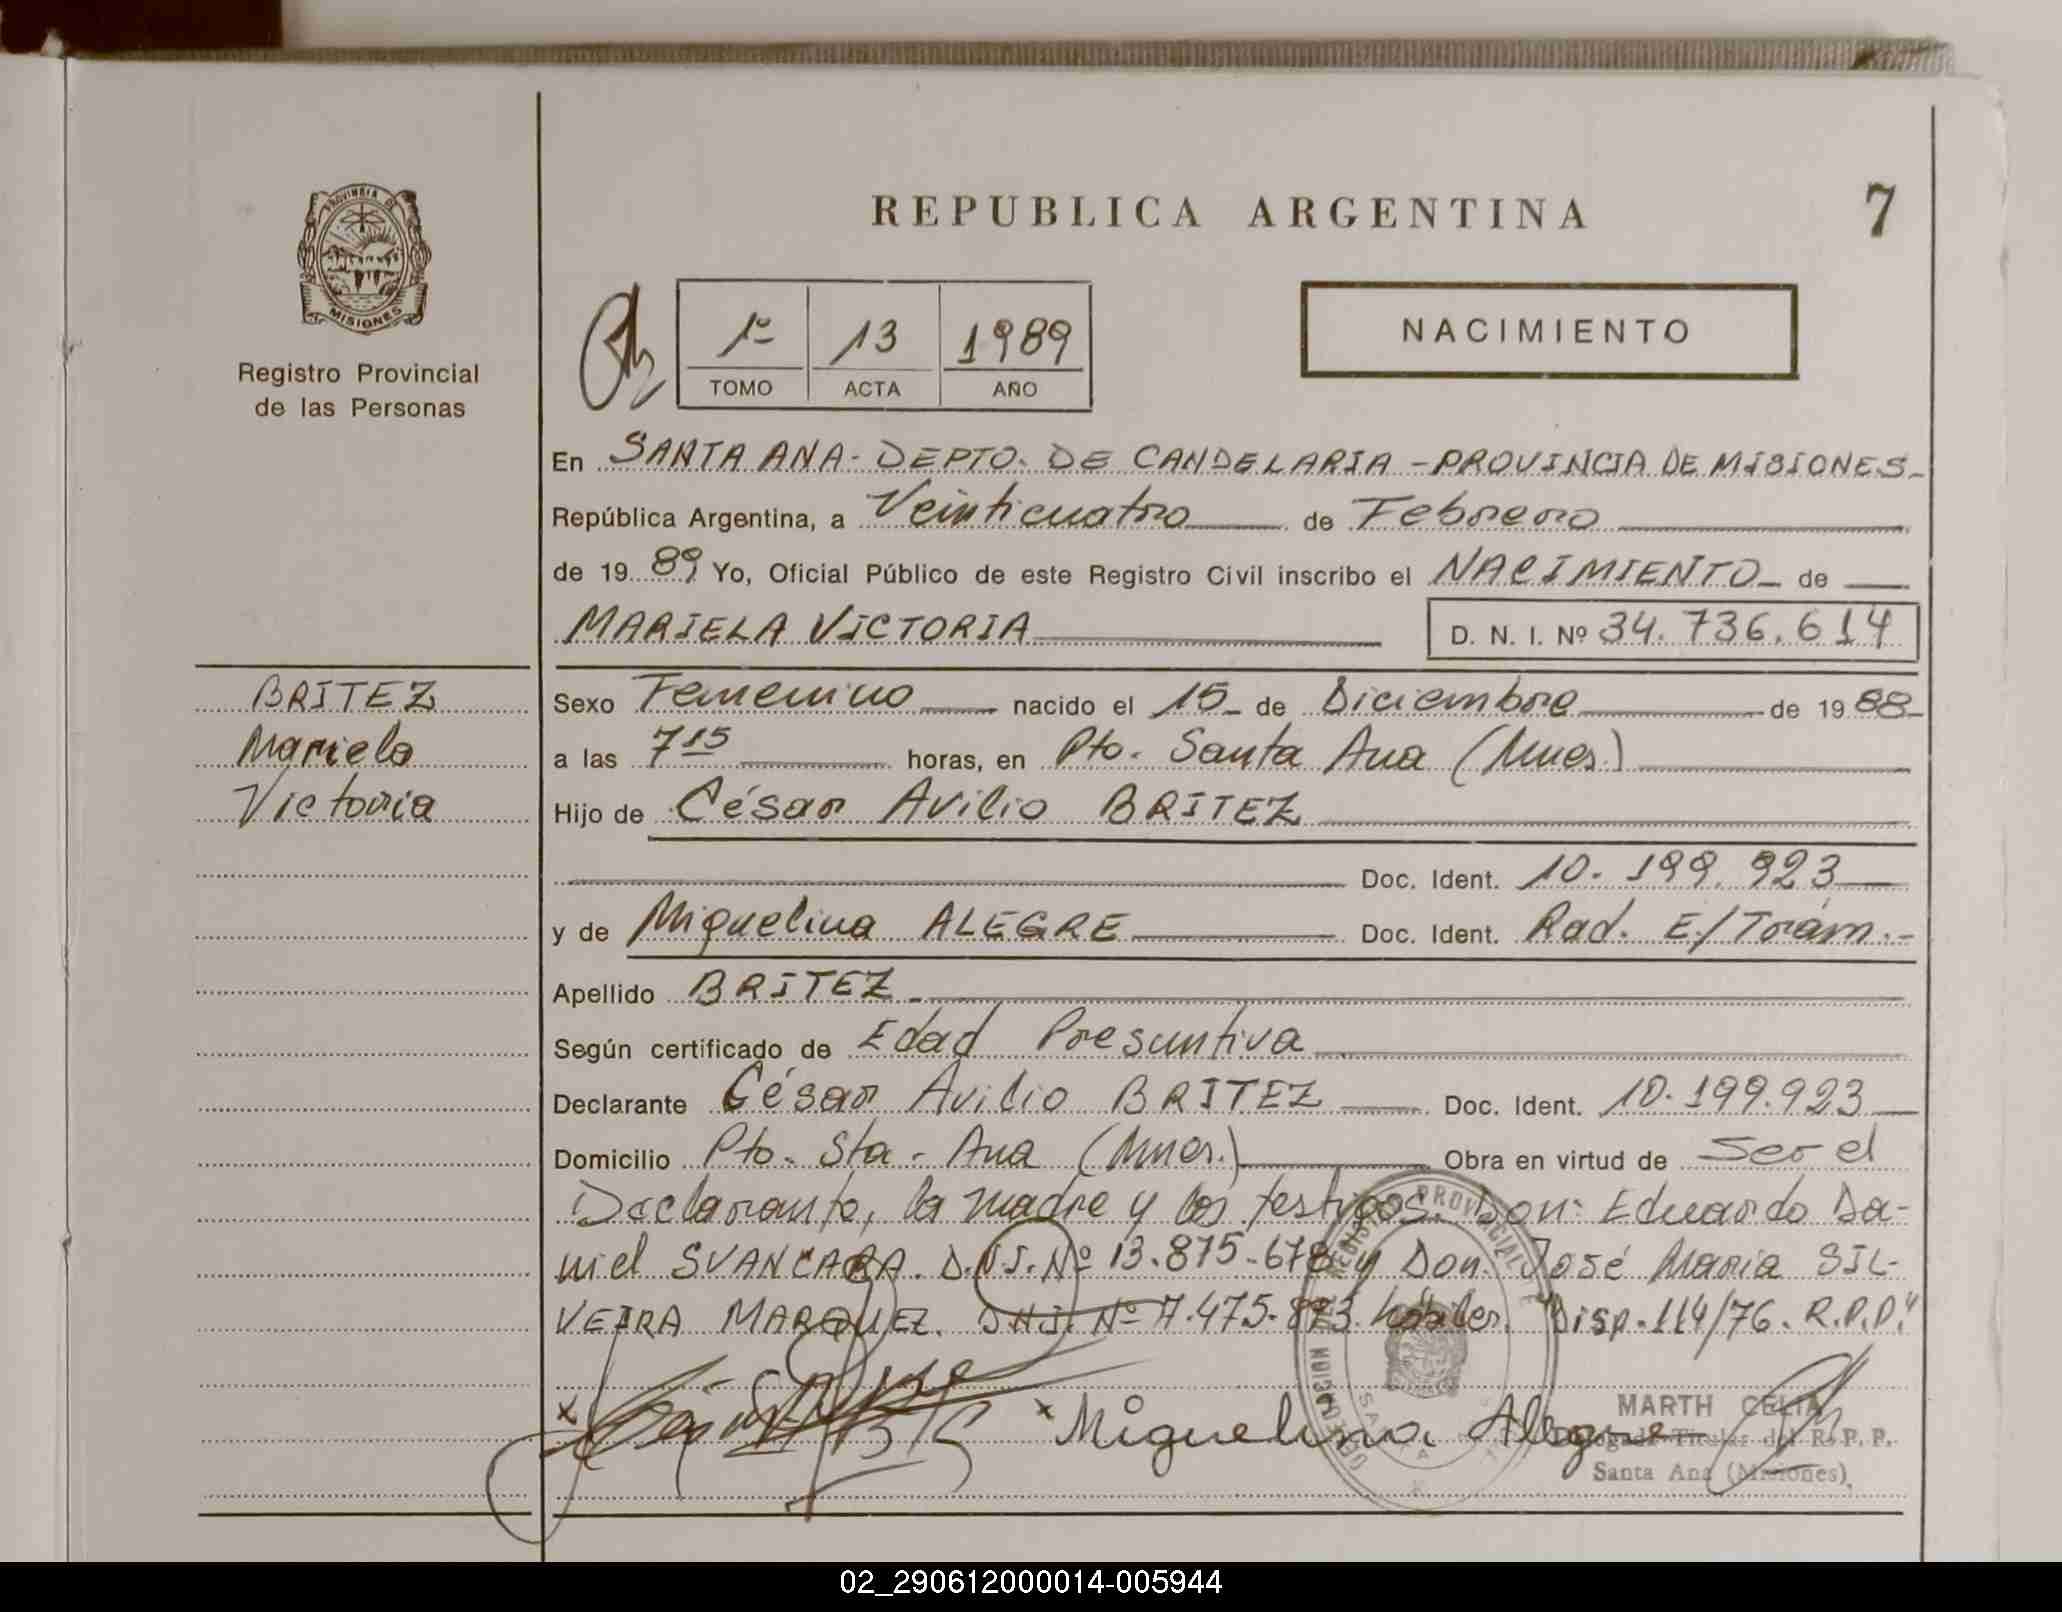 REPUBLICA ARGENTINA
7
PROVINCIA DE
MISIONES
Registro Provincial
de las Personas
1º 13 1989
TOMO ACTA AÑO
NACIMIENTO
En SANTA ANA - DEPTO. DE CANDELARIA - PROVINCIA DE MISIONES-
República Argentina, a Veinticuatro de Febrero
de 19 89 Yo, Oficial Público de este Registro Civil inscribo el NACIMIENTO de
MARIELA VICTORIA D. N. I. Nº 34.736.614
BRITEZ
Mariela
Victoria
Sexo Femenino nacido el 15 de Diciembre de 19 88
a las 7 15 horas, en Pto. Santa Ana (Mnes.)
Hijo de César Avilio BRITEZ
Doc. Ident. 10.199.923
y de Miguelina ALEGRE Doc. Ident. Rad. E./Trám.-
Apellido BRITEZ
Según certificado de Edad Presuntiva
Declarante César Avilio BRITEZ Doc. Ident. 10.199.923
Domicilio Pto. Sta. Ana (Mnes.) Obra en virtud de Ser el
Declarante, la madre y los testigos: Don: Eduardo Da-
niel SVANCARA. D.N.I. Nº 13.875.678 y Don José Maria SIL-
VEIRA MARQUEZ. DNI. Nº 7.475.873 hábiles. "Disp. 114/76. R.P.P."
x x Miguelina Alegre
MARTH CELIA
Delegada Titular del R. P. P.
Santa Ana (Misiones)
02_290612000014-005944